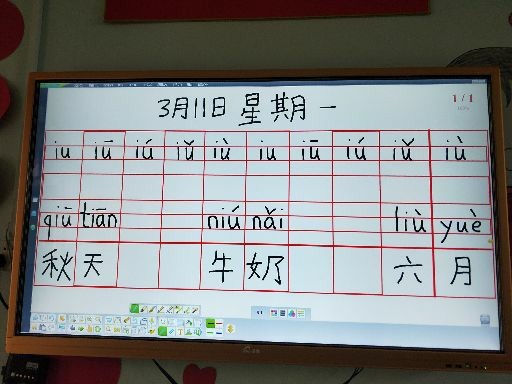 3月11日 星期一
1/1
iu iū iú iǔ iù iu iū iú iǔ iù
qiū tiān niú nǎi liù yuè
秋 天 牛 奶 六 月